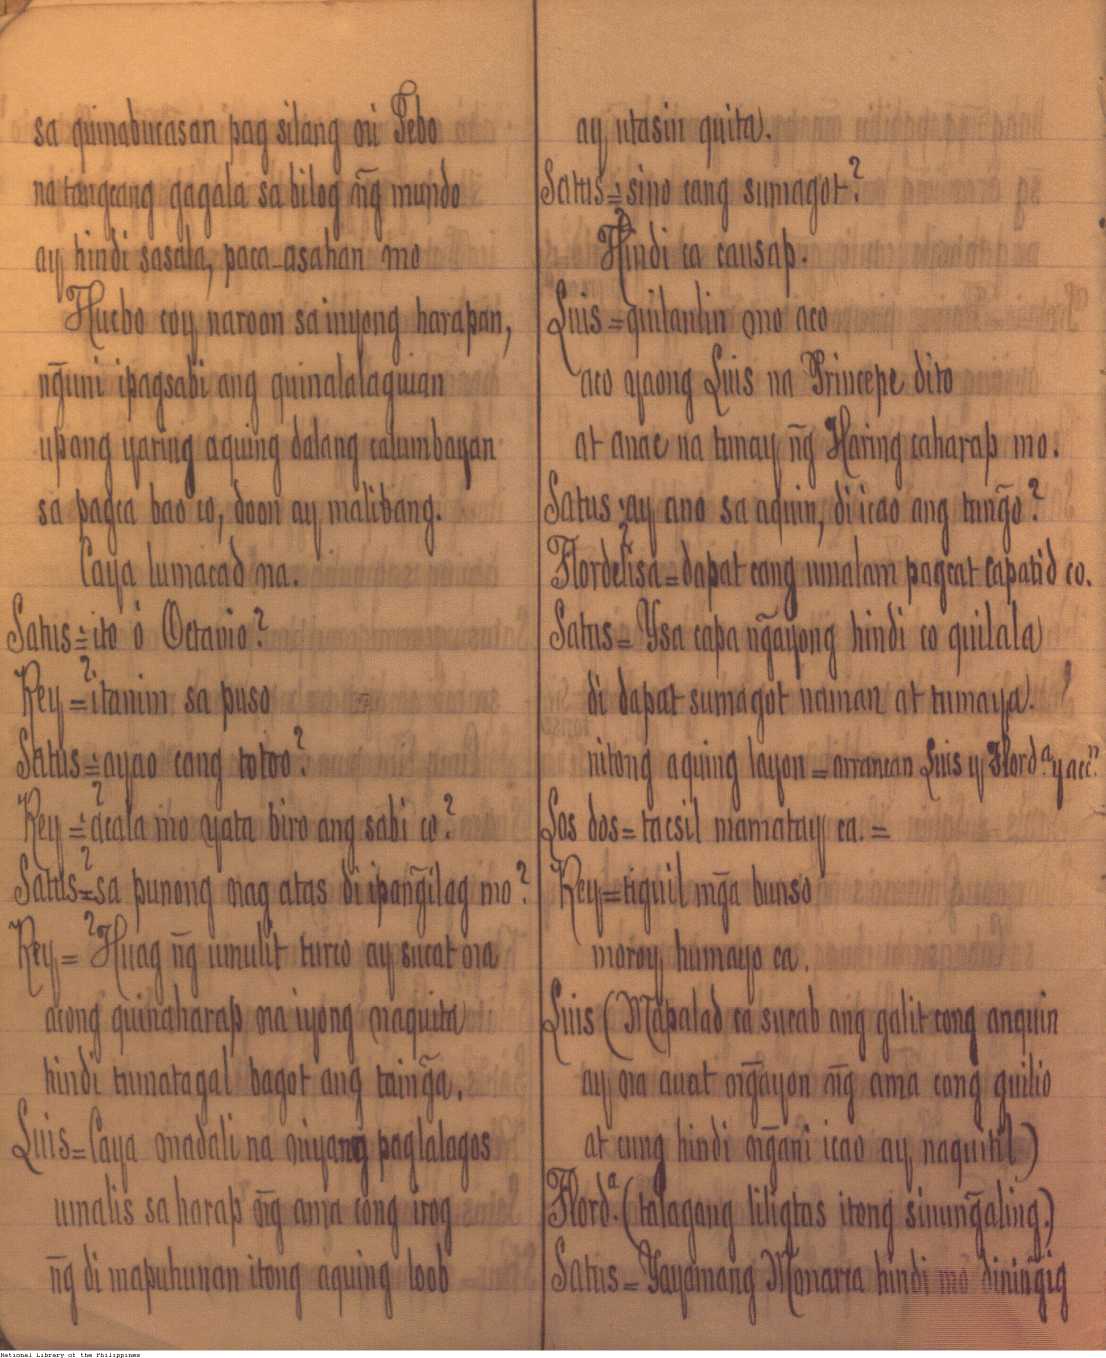 sa quinabucasan pag silang ni Febo
na tangcang gagala sa bilog n̄g mundo
ay hindi sasala, paca-asahan mo
Huebo coy naroon sa inyong harapan,
n̄guni ipagsabi ang quinalalaguian
upang yaring aquing dalang calumbayan
sa pagca bao co, doon ay malibang.
Caya lumacad na.
Satus = ito ó Octavio?
Rey = itanim sa puso
Satus = ayao cang totoo?
Rey = acala mo yata biro ang sabi co?
Satus = sa punong nag atas di ipan̄gilag mo?
Rey = Huag n̄g umulit turco ay sucat na
acong quinaharap na iyong naquita
hindi tumatagal bagot ang tain̄ga,
Luis = Caya madali na niyang paglalagos
umalis sa harap n̄g ama cong irog
n̄g di mapuhunan itong aquing loob
ay utasin quita.
Satus = sino cang sumagot?
Hindi ca causap.
Luis = quilanlin mo aco
aco yaong Luis na Principe dito
at anac na tunay n̄g Haring caharap mo.
Satus = ay ano sa aquin, di icao ang tun̄go?
Flordelisa = dapat cang umalam pagcat capatid co.
Satus = Ysa capa n̄gayong hindi co quilala
di dapat sumagot naman at tumaya.
nitong aquing layon = arrancan Luis y Flord.ª y acc.n
Los dos = tacsil mamatay ca. =
Rey = tiguil mn̄ga bunso
moroy humayo ca.
Luis (Mapalad ca sucab ang galit cong anquin
ay na auat n̄gayon n̄g ama cong guilio
at cung hindi n̄gani icao ay naquitil)
Flord.ª (talagang liligtas itong sinun̄galing.)
Satus = Yayamang Monarca hindi mo dinin̄gig
National Library of the Philippines